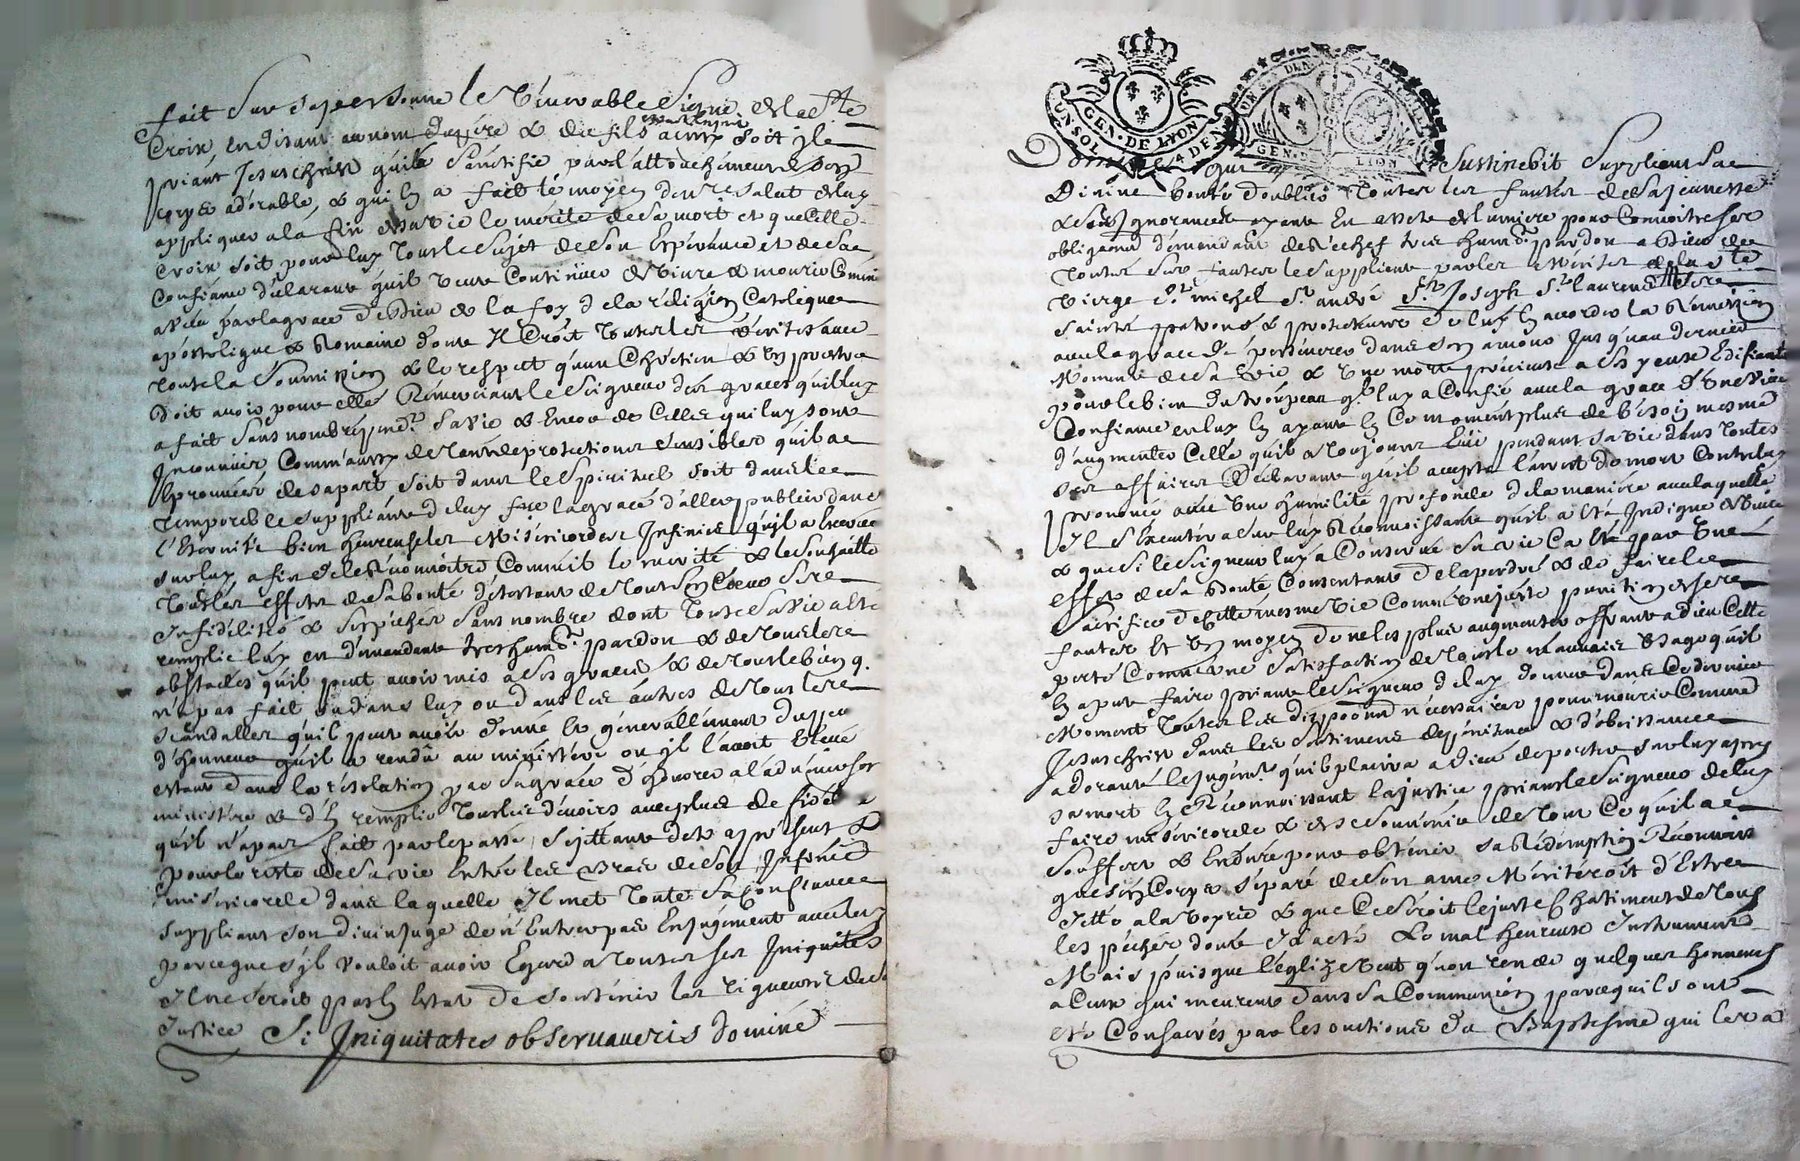 fait sur sa personne le vénérable Signe de la Ste
Croix en disant au nom du père & du fils & du St Esprit ainsy soit il
priant Jesus christ qui la sanctifié par l'attouchement de son
corps adorable, & qui en a fait le moyen de nre salut de luy
appliquer a la fin de sa vie le mérite de sa mort et que Cette
Croix soit pour luy tout le sujet de son Espérance et de sa
Confiance déclarant quil veut Continuer de vivre & mourir
avec par la grace de Dieu de la foy de la réligion Catolique
apostolique & Romaine dont Il Croit toutes les vérités avec
toute la soumission & le respect qu'un Chrétien & un prestre
doit avoir pour elle Remerciant le Seigneur des graces quil luy
a fait sans nombre pendt sa vie & Encor de Celles qui luy sont
Inconnues Comm'aussy de tant de protections sensibles quil a
Eprouvées de sa part soit dans le Spirituel soit dans le
temporel le suppliant de luy fre la grace d'aller publier dans
l'Eternité bien heureuse les Miséricordes Infinies qu'il a Exercée
sur luy, afin de les Reconnoitre Comm'il le mérite & le souhaitte
tous les effets de sa bonté détestant de tout son Coeur ses
Infidélités & ses péchés sans nombre dont toute sa vie a été
remplie luy en demandant tres humbt pardon & de tous les
obstacles qu'il peut avoir mis a ses graces & de tout le bien q.
n'a pas fait ou dans luy ou dans les autres de tous les
scandalles qu'il peut avoir donné & générallement du peu
d'honneur qu'il a rendu au ministère ou il l'avoit Elevé
estant dans la résolution par sa grace d'honorer a l'advenir son
ministère & d'en remplir tous les dévoirs avec plus de fidélité
qu'il n'a pas fait par le passé, se jettant dès a présent &
pour le reste de sa vie Entre les bras de son Infinie
miséricorde dans laquelle Il met toute sa Confiance
suppliant son divin juge de n'Entrer pas En jugement avec luy
parceque s'il vouloit avoir Egard a toutes ses Iniquités
Il ne seroit pas En Estat de soutenir les rigueurs de sa
Justice Si Iniquitates observaveris Domine
GEN. DE LYON
GEN. DE LION
Domine quis Sustinebit Suppliant Sa
Divine bonté d'oublier toutes les fautes de sa jeunesse
& ses Ignorances ayant En assés de lumière pour Connoitre ses
obligaons démandant derechef tres humbt pardon a Dieu de
toutes ses fautes le suppliant par les Mérites de la Ste
Vierge St michel St andré St Joseph St laurens & ses
saints patrons & protecteurs de luy En accorder la Rémission
avec la grace de persévérer dans son amour Jusqu'au dernier
Moment de sa vie & une mort précieuse a ses yeux Edifiante
pour le bien du troupeau q'il luy a Confié avec la grace d'une vive
Confiance en luy En ayant En Ce moment plus de besoin mesme
d'augmenter Celle qu'il a toujours Eüe pendant sa vie dans toutes
ses affaires Déclarant qu'il accepte l'arrest de mort Contre luy
prononcé avec une humilité profonde de la manière avec laquelle
Il s'exécutera sur luy Reconnoissant qu'il a été Indigne de vivre
& que si le Seigneur luy a Conservé sa vie Ca été par Une
effet de sa bonté Consentant de la perdre & de faire le
Sacrifice de Cette mesme vie Comm'une juste punition de ses
fautes Et Un moyen de ne les plus augmenter offrant a Dieu Cette
perte Comm'une satisfaction de tout le mauvais Usage qu'il
En a pu faire priant le Seigneur de luy donner dans Ce dernier
Moment toutes les dispoõns nécessaires pour mourir Comme
Jesus christ dans les sentimens de pénitence & d'obéissance
adorant le jugemt qu'il plaira a Dieu de porter sur luy apres
sa mort En Reconnoissant la justice priant le Seigneur de luy
faire miséricorde & de se souvenir de tout Ce qu'il a
souffert & Enduré pour obtenir sa Rédemption Reconnoit
que son Corps séparé de son ame Mériteroit d'Estre
jetté a la voyrie & que Ce seroit le juste Chatiment de tous
les péchés dont Il a été Le mal heureux Instrument
Mais puisque l'églize veut qu'on rende quelques honneurs
a Ceux qui meurent dans sa Communion parcequ'ils ont
été Consacrés par les onctions du Baptesme qui les a